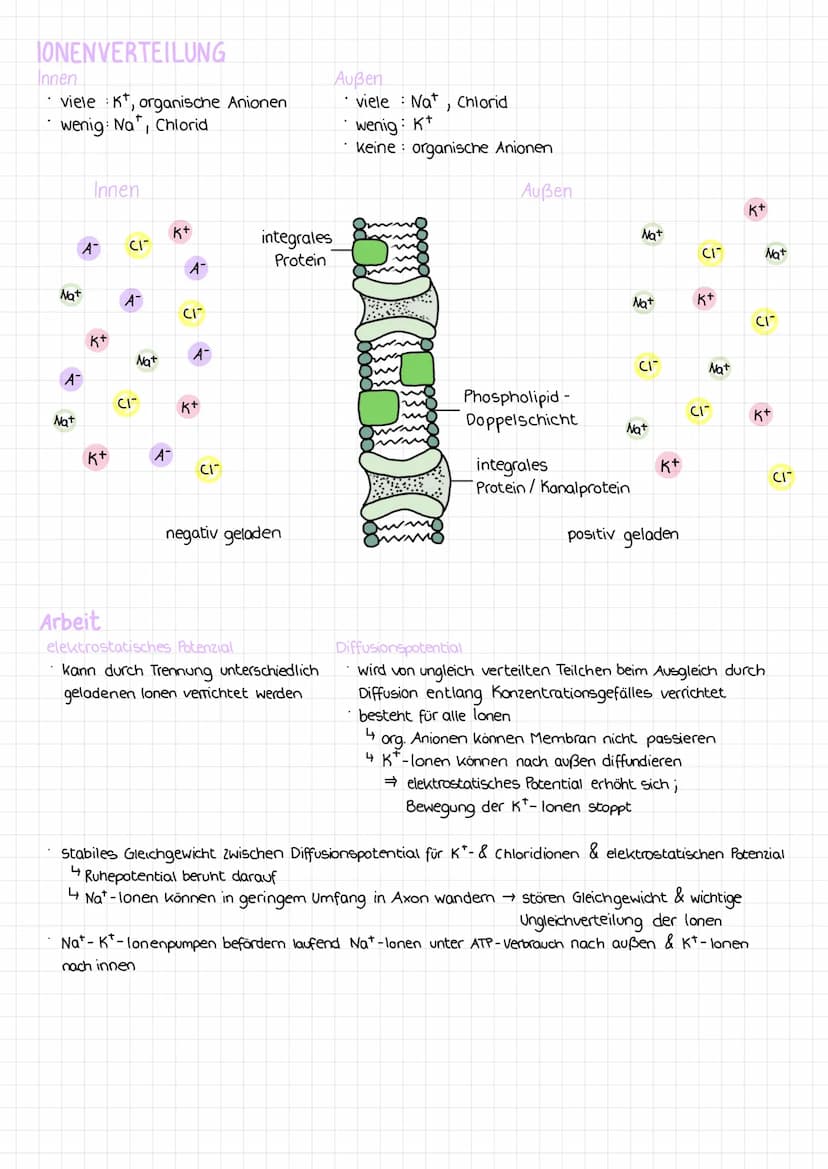 IONENVERTEILUNG
Innen
· viele : K⁺, organische Anionen
· wenig: Na⁺, Chlorid
Außen
· viele : Na⁺, Chlorid
· wenig: K⁺
· keine : organische Anionen
Innen
Außen
K⁺
A⁻
Cl⁻
A⁻
Na⁺
A⁻
Cl⁻
K⁺
Na⁺
A⁻
A⁻
Cl⁻
K⁺
Na⁺
K⁺
A⁻
Cl⁻
negativ geladen
integrales
Protein
Phospholipid-
Doppelschicht
integrales
Protein / Kanalprotein
K⁺
Na⁺
Cl⁻
Na⁺
Na⁺
K⁺
Cl⁻
Cl⁻
Na⁺
Cl⁻
K⁺
Na⁺
K⁺
Cl⁻
positiv geladen
Arbeit
elektrostatisches Potenzial
· kann durch Trennung unterschiedlich
geladenen Ionen verrichtet werden
Diffusionspotential
· wird von ungleich verteilten Teilchen beim Ausgleich durch
Diffusion entlang Konzentrationsgefälles verrichtet
· besteht für alle Ionen
↳ org. Anionen können Membran nicht passieren
↳ K⁺-Ionen können nach außen diffundieren
⇒ elektrostatisches Potential erhöht sich;
Bewegung der K⁺-Ionen stoppt
· stabiles Gleichgewicht zwischen Diffusionspotential für K⁺- & Chloridionen & elektrostatischen Potenzial
↳ Ruhepotential beruht darauf
↳ Na⁺-Ionen können in geringem Umfang in Axon wandern → stören Gleichgewicht & wichtige
Ungleichverteilung der Ionen
· Na⁺-K⁺-Ionenpumpen befördern laufend Na⁺-Ionen unter ATP-Verbrauch nach außen & K⁺-Ionen
nach innen